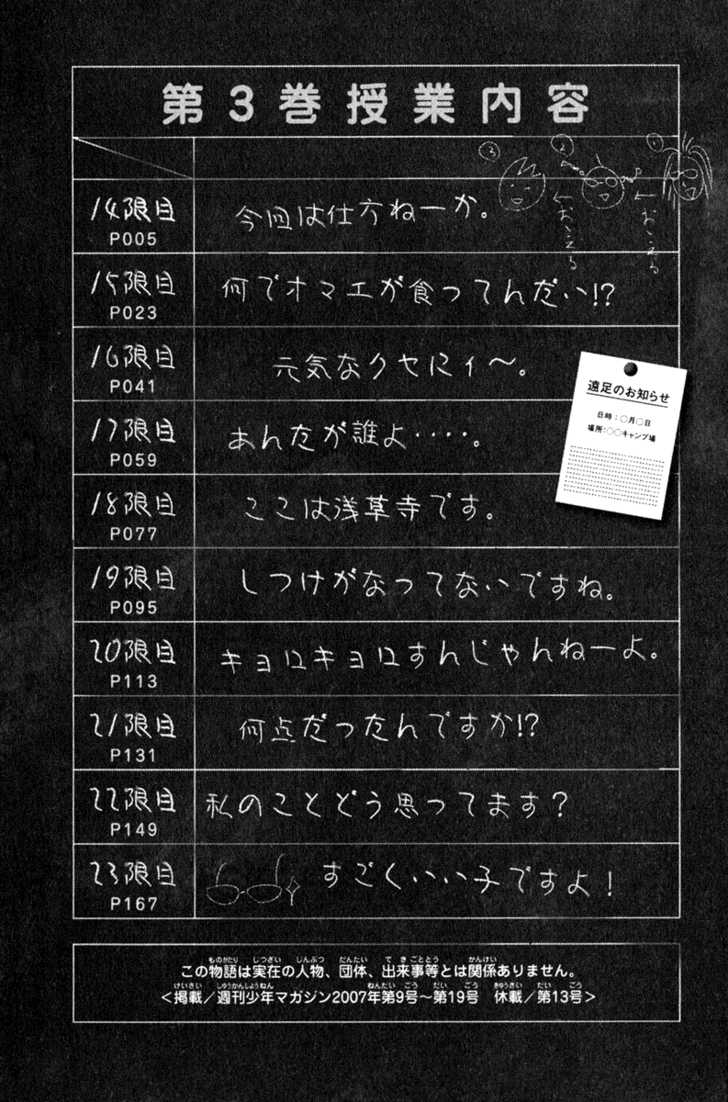 第3巻授業内容
③
②
①
←おこえる
←おこえる
14限目
P005
今回は仕方ねーか。
15限目
P023
何でオマエが食ってんだい!?
16限目
P041
元気なクセにィ〜。
遠足のお知らせ
日時:○月○日
場所:○○キャンプ場
17限目
P059
あんたが誰よ・・・・。
18限目
P077
ここは浅草寺です。
19限目
P095
しつけがなってないですね。
20限目
P113
キョロキョロすんじゃんねーよ。
21限目
P131
何点だったんですか!?
22限目
P149
私のことどう思ってます?
23限目
P167
すごくいい子ですよ!
この物語は実在の人物、団体、出来事等とは関係ありません。
<掲載/週刊少年マガジン2007年第9号〜第19号 休載/第13号>